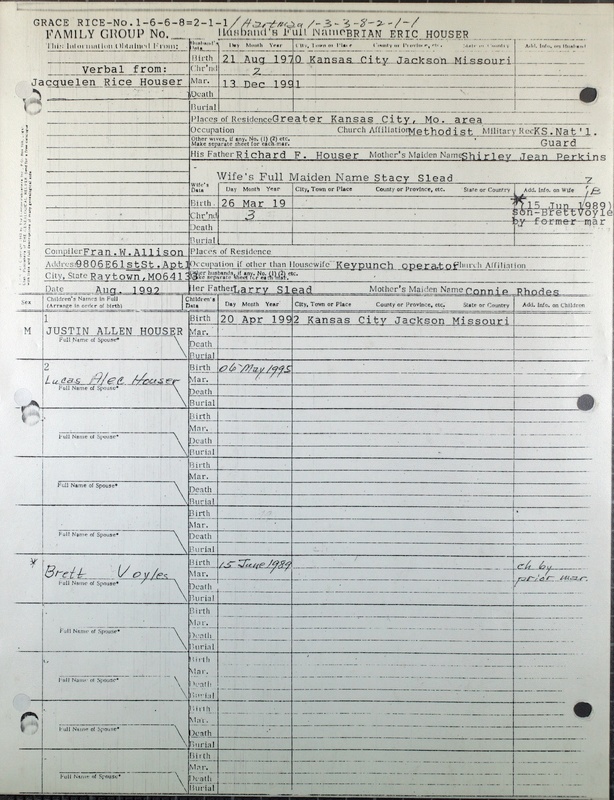 GRACE RICE-No.1-6-6-8=2-1-1/Hartman/-3-3-8-2-1-1
FAMILY GROUP No. Husband's Full Name BRIAN ERIC HOUSER
This Information Obtained From: Husband's Data Day Month Year City, Town or Place County or Province, etc. State or Country Add. Info. on Husband
Birth 21 Aug 1970 Kansas City Jackson Missouri
Verbal from: Chr'nd 2
Jacquelen Rice Houser Mar. 13 Dec 1991
Death
Burial
Places of Residence Greater Kansas City, Mo. area
Occupation Church Affiliation Methodist Military Rec KS.Nat'l.
Other wives, if any, No. (1) (2) etc. Make separate sheet for each mar. Guard
His Father Richard F. Houser Mother's Maiden Name Shirley Jean Perkins
Wife's Full Maiden Name Stacy Slead
Wife's Data Day Month Year City, Town or Place County or Province, etc. State or Country Add. Info. on Wife
Birth 26 Mar 19 *(15 Jun 1989)
Chr'nd 3 son-BrettVoyle
Death by former mar
Burial
Compiler Fran.W.Allison Places of Residence
Address 9806E61stSt.Apt1 Occupation if other than Housewife Keypunch operator Church Affiliation
City, State Raytown,MO64133 Other husbands, if any, No. (1) (2) etc. Make separate sheet for each mar.
Date Aug. 1992 Her Father Larry Slead Mother's Maiden Name Connie Rhodes
Sex Children's Names in Full (Arrange in order of birth) Children's Data Day Month Year City, Town or Place County or Province, etc. State or Country Add. Info. on Children
1 Birth 20 Apr 1992 Kansas City Jackson Missouri
M JUSTIN ALLEN HOUSER Mar.
Full Name of Spouse* Death
Burial
2 Birth 06 May 1995
Lucas Alec Houser Mar.
Full Name of Spouse* Death
Burial
Birth
Mar.
Full Name of Spouse* Death
Burial
Birth
Mar.
Full Name of Spouse* Death
Burial
Birth
Mar.
Full Name of Spouse* Death
Burial
* Birth 15 June 1989 ch by
Brett Voyles Mar. prior mar.
Full Name of Spouse* Death
Burial
Birth
Mar.
Full Name of Spouse* Death
Burial
Birth
Mar.
Full Name of Spouse* Death
Burial
Birth
Mar.
Full Name of Spouse* Death
Burial
Birth
Mar.
Full Name of Spouse* Death
Burial